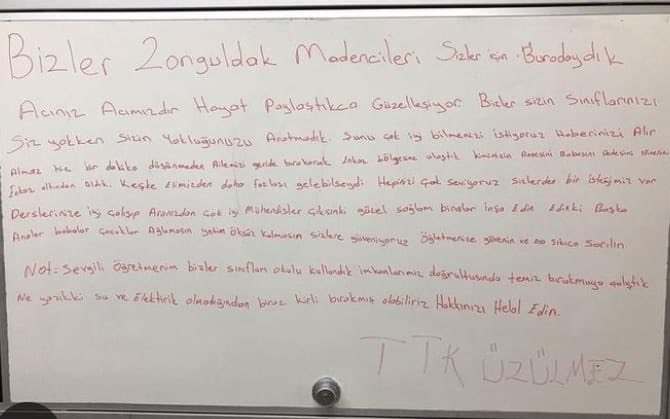 Bizler Zonguldak Madencileri Sizler için Buradaydık
Acınız Acımızdır Hayat Paylaştıkca Güzelleşiyor Bizler sizin Sınıflarınızı
Siz yokken Sizin Yokluğunuzu Aratmadık. Şunu çok iyi bilmenizi istiyoruz Haberinizi Alır
Almaz hiç bir dakika düşünmeden Ailemizi geride bırakarak Enkaz bölgesine ulaştık kiminizin Annesini Babasını Dedesini Ninesini
Enkaz altından Aldık. Keşke Elimizden daha fazlası gelebilseydi Hepinizi çok seviyoruz Sizlerden bir isteğimiz var
Derslerinize iyi çalışıp Aranızdan çok iyi Mühendisler çıksınki güzel sağlam binalar inşa Edin Edinki Başka
Analar babalar çocuklar Ağlamasın yetim öksüz kalmasın sizlere güveniyoruz Öğretmenize güvenin ve ona sıkıca Sarılın
Not: Sevgili Öğretmenim bizler sınıfları okulu kullandık imkanlarımız doğrultusunda temiz bırakmaya çalıştık
Ne yazıkki su ve Elektirik olmadığından biraz kirli bırakmış olabiliriz Hakkınızı Helal Edin.
TTK ÜZÜLMEZ